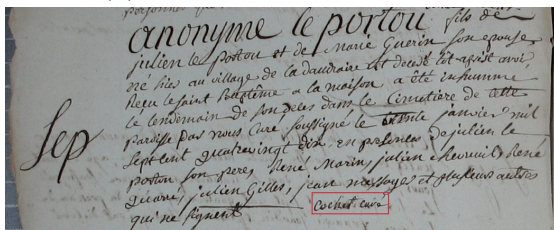 anonyme le portou fils de
julien le portou et de Marie Guerin son epouse
né hier au village de la daudraire et decedé cet apres avoir
Recu le saint Baptême a la maison, a été inhumé
le lendemain de son deces dans le Cimetiere de cette
paroisse par nous Curé soussigné le trente janvier mil
Sept cent quatrevingt dix, en presence de julien le
portou son pere, René Marin, julien chevreuil, René
julien Gilles, jean messager et plusieurs autres
qui ne signent
cochet curé
Sep